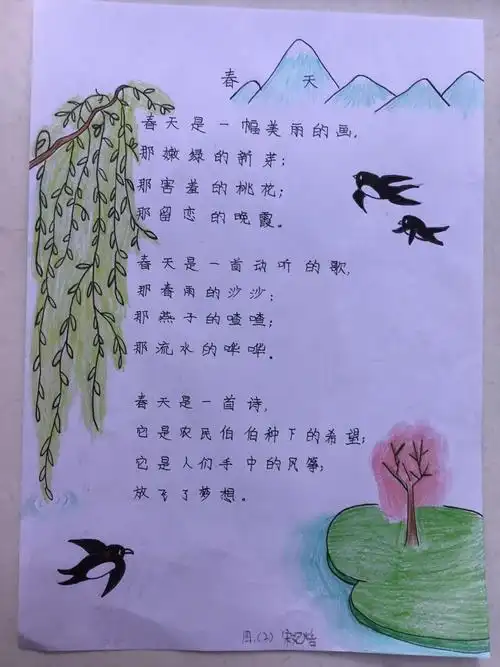 春天
春天是一幅美丽的画,
那嫩绿的新芽;
那害羞的桃花;
那留恋的晚霞。
春天是一首动听的歌,
那春雨的沙沙;
那燕子的喳喳;
那流水的哗哗。
春天是一首诗,
它是农民伯伯种下的希望;
它是人们手中的风筝;
放飞了梦想。
四.(2)